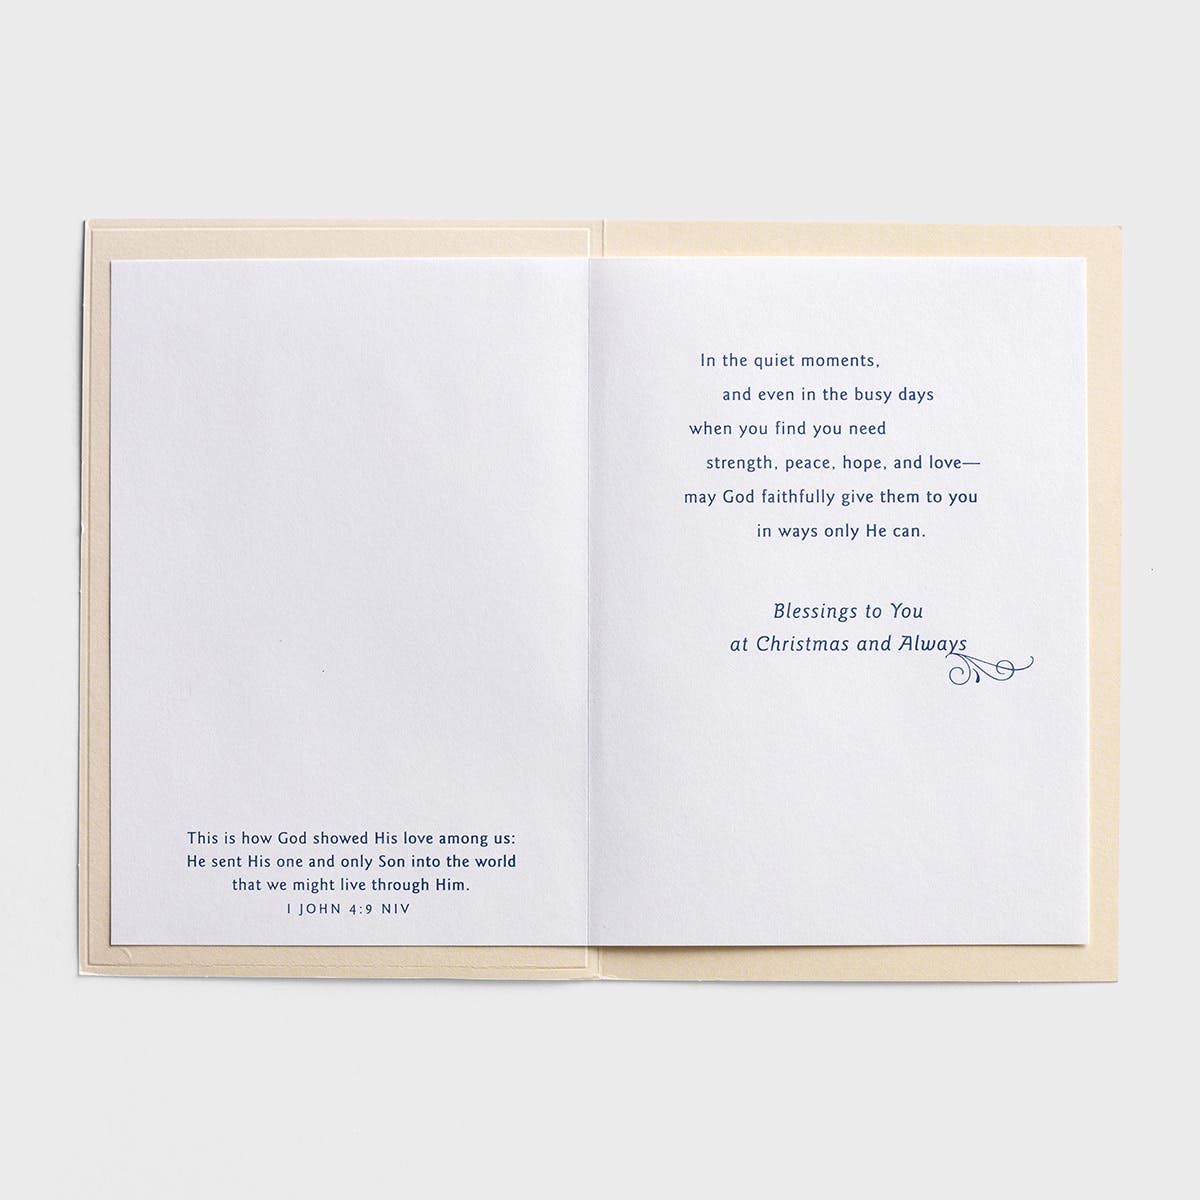 This is how God showed His love among us:
He sent His one and only Son into the world
that we might live through Him.
I JOHN 4:9 NIV
In the quiet moments,
and even in the busy days
when you find you need
strength, peace, hope, and love—
may God faithfully give them to you
in ways only He can.
Blessings to You
at Christmas and Always